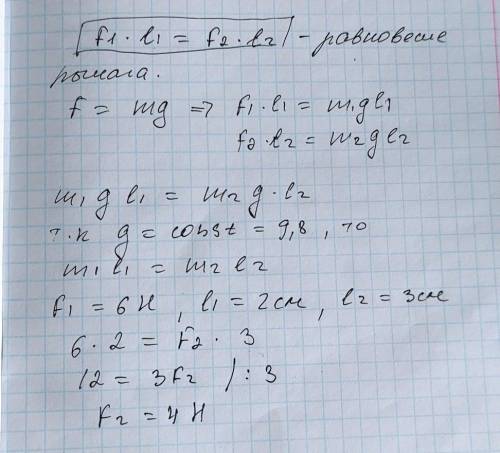 f₁ · l₁ = f₂ · l₂ - равновесие
рычага.
f = mg => f₁ · l₁ = m₁gl₁
f₂ · l₂ = m₂gl₂
m₁ g l₁ = m₂ g · l₂
т.к g = const = 9,8, то
m₁ l₁ = m₂ l₂
f₁ = 6 Н, l₁ = 2см, l₂ = 3см
6 · 2 = F₂ · 3
12 = 3F₂ / : 3
F₂ = 4 Н